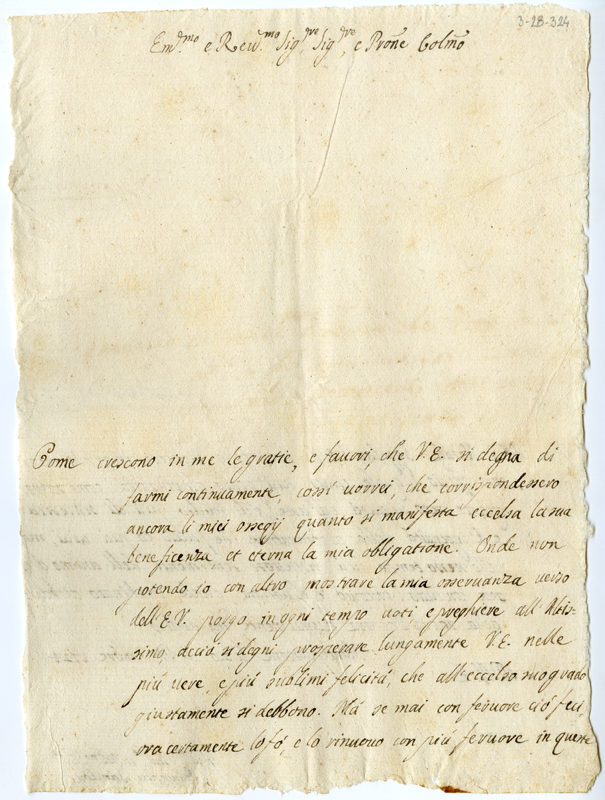 3-28-324
Em.mo e Rev.mo Sig.re Sig.re, e Prõne Colmo
Come crescono in me le gratie, e favori, che V.E. si degna di
farmi continuamente, cossi vorrei, che corrispondessero
ancora li miei ossegij quanto si manifesta eccelsa la sua
beneficenza et eterna la mia obligatione. Onde non
potendo io con altro mostrare la mia osservanza verso
dell'E.V. porgo in ogni tempo voti, e preghiere all'Altis=
simo, acciò si degni prosperare lungamente V.E. nelle
più vere, e più sublimi felicità, che all'eccelso suo grado
giustamente si debbono. Mà se mai con fervore ciò feci,
ora certamente lo fò, e lo rinuovo con più fervore in queste